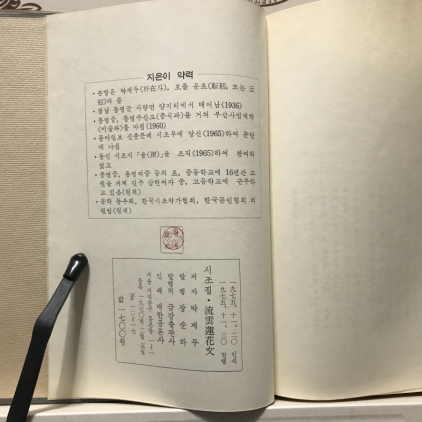 지은이 약력
• 본명은 박재두(朴在斗), 호를 운초(耘初, 또는 云
初)라 씀
• 경남 통영군 사량면 양지리에서 태어남(1936)
• 통영중, 통영수산고(증식과)를 거쳐 부산사범대학
(미술과)를 마침(1960)
• 동아일보 신춘문예 시조부에 당선(1965)하여 문단
에 나섬
• 동인 시조지「율(律)」을 조직(1965)하여 참여하
였고
• 통영중, 통영여중 등의 초, 중등학교에 16년간 교
원을 거쳐 진주 삼현여자 중, 고등학교에 근무하
고 있음(현재)
• 문학 동우회, 한국시조작가협회, 한국문인협회 회
원임(현재)
一九七五. 十一. 二〇 인쇄
一九七五. 十一. 三〇 발행
시조집 · 流雲蓮花文
저 자 박 재 두
발 행 장 순 하
발행처 금강출판사
인 쇄 대한공론사
값 一七〇〇원